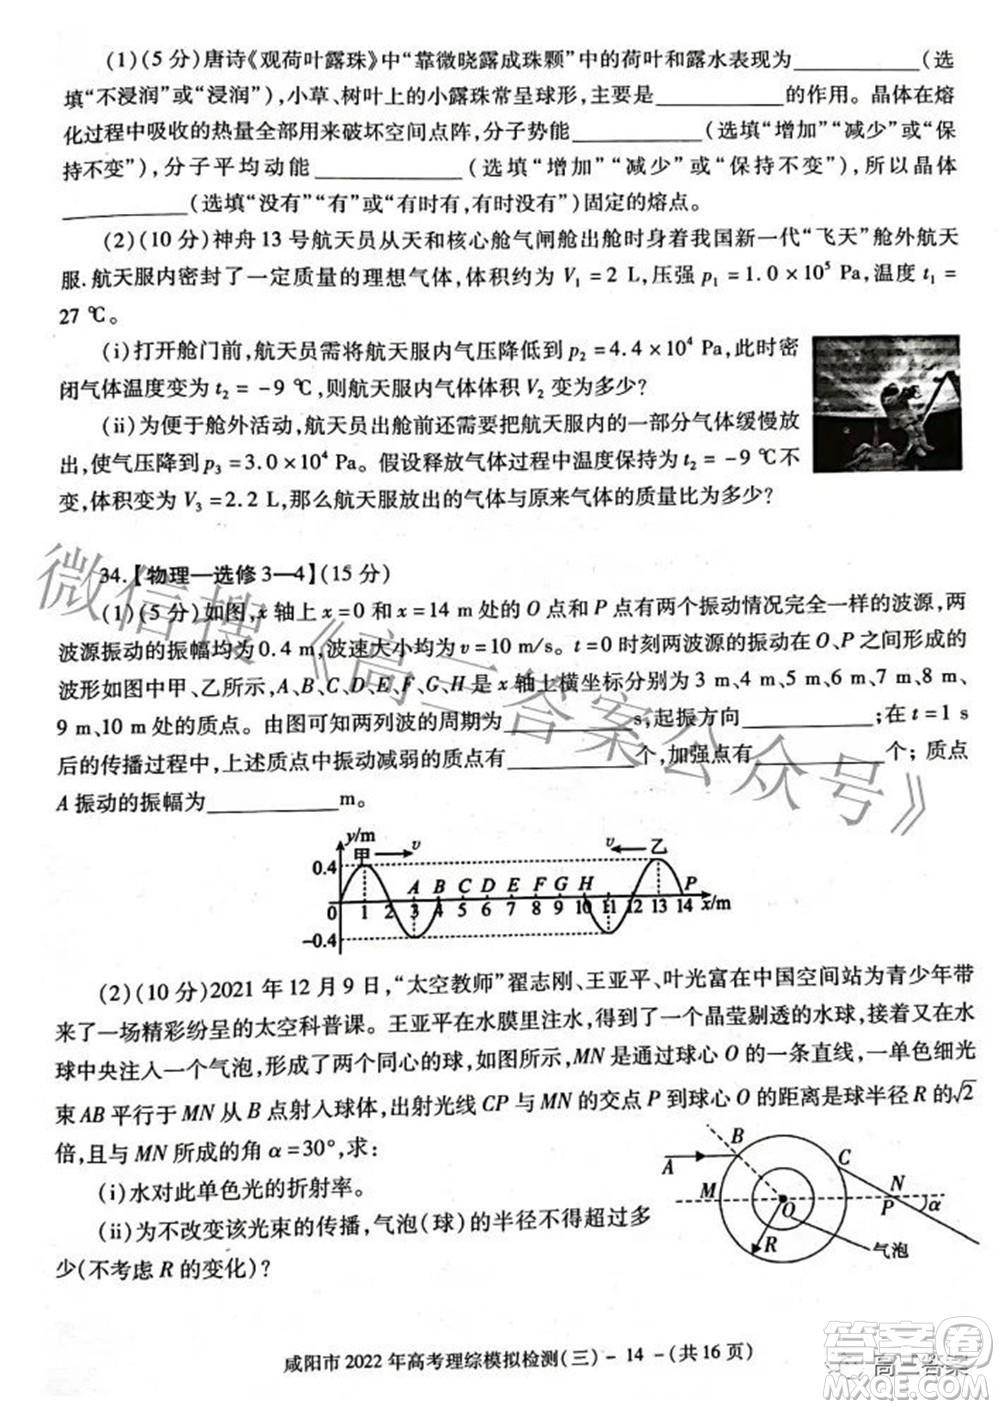 (1)(5 分)唐诗《观荷叶露珠》中“靠微晓露成珠颗”中的荷叶和露水表现为__________(选
填“不浸润”或“浸润”),小草、树叶上的小露珠常呈球形,主要是__________的作用。晶体在熔
化过程中吸收的热量全部用来破坏空间点阵,分子势能__________(选填“增加”“减少”或“保
持不变”),分子平均动能__________(选填“增加”“减少”或“保持不变”),所以晶体
__________(选填“没有”“有”或“有时有,有时没有”)固定的熔点。
(2)(10 分)神舟 13 号航天员从天和核心舱气闸舱出舱时身着我国新一代“飞天”舱外航天
服.航天服内密封了一定质量的理想气体,体积约为 V₁=2 L,压强 p₁=1.0×10⁵ Pa,温度 t₁=
27 ℃。
(i)打开舱门前,航天员需将航天服内气压降低到 p₂=4.4×10⁴ Pa,此时密
闭气体温度变为 t₂=-9 ℃,则航天服内气体体积 V₂ 变为多少?
(ii)为便于舱外活动,航天员出舱前还需要把航天服内的一部分气体缓慢放
出,使气压降到 p₃=3.0×10⁴ Pa。假设释放气体过程中温度保持为 t₂=-9 ℃不
变,体积变为 V₃=2.2 L,那么航天服放出的气体与原来气体的质量比为多少?
34.【物理—选修 3—4】(15 分)
(1)(5 分)如图,x 轴上 x=0 和 x=14 m 处的 O 点和 P 点有两个振动情况完全一样的波源,两
波源振动的振幅均为 0.4 m,波速大小均为 v=10 m/s。t=0 时刻两波源的振动在 O、P 之间形成的
波形如图中甲、乙所示,A、B、C、D、E、F、G、H 是 x 轴上横坐标分别为 3 m、4 m、5 m、6 m、7 m、8 m、
9 m、10 m 处的质点。由图可知两列波的周期为__________s,起振方向__________;在 t=1 s
后的传播过程中,上述质点中振动减弱的质点有__________个,加强点有__________个;质点
A 振动的振幅为__________m。
y/m
甲 v v 乙
0.4
A B C D E F G H P
0 1 2 3 4 5 6 7 8 9 10 11 12 13 14 x/m
-0.4
(2)(10 分)2021 年 12 月 9 日,“太空教师”翟志刚、王亚平、叶光富在中国空间站为青少年带
来了一场精彩纷呈的太空科普课。王亚平在水膜里注水,得到了一个晶莹剔透的水球,接着在水
球中央注入一个气泡,形成了两个同心的球,如图所示,MN 是通过球心 O 的一条直线,一单色细光
束 AB 平行于 MN 从 B 点射入球体,出射光线 CP 与 MN 的交点 P 到球心 O 的距离是球半径 R 的√2
倍,且与 MN 所成的角 α=30°,求:
(i)水对此单色光的折射率。
(ii)为不改变该光束的传播,气泡(球)的半径不得超过多
少(不考虑 R 的变化)?
A B C
M O N
P α
R 气泡
咸阳市 2022 年高考理综模拟检测(三)- 14 -(共16页)
微信搜《高三答案公众号》
高三答案
MXQE.COM